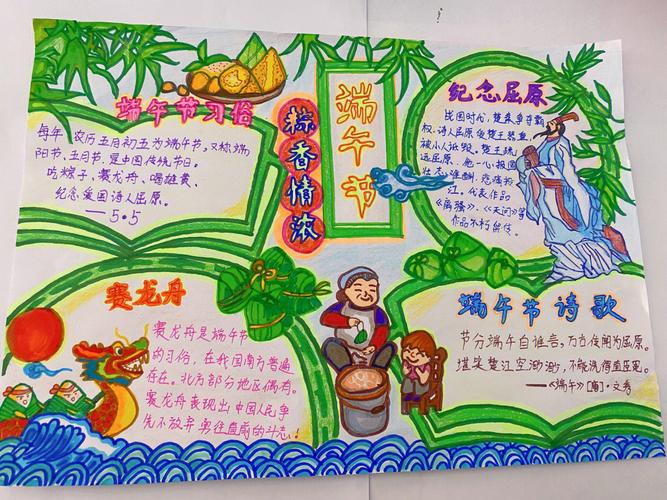 端午节习俗
每年农历五月初五为端午节，又称端
阳节、五月节，是中国传统节日。
吃粽子、赛龙舟、喝雄黄、
纪念爱国诗人屈原。
——5·5
粽香情浓
端午节
纪念屈原
战国时代，楚秦争夺霸
权，诗人屈原
被小人诋毁。楚王疏
远屈原，他一心报国
壮志难酬，悲痛投
江。代表作品
《离骚》、《天问》等
作品不朽
赛龙舟
赛龙舟是端午节
的习俗，在我国南方普遍
存在。北方部分地区偶有。
赛龙舟表现出中国人民争
先不放弃勇往直前的斗志！
端午节诗歌
节分端午自谁言，万古传闻为屈原。
堪笑楚江空渺渺，不能洗得直臣冤。
——《端午》[唐]·文秀